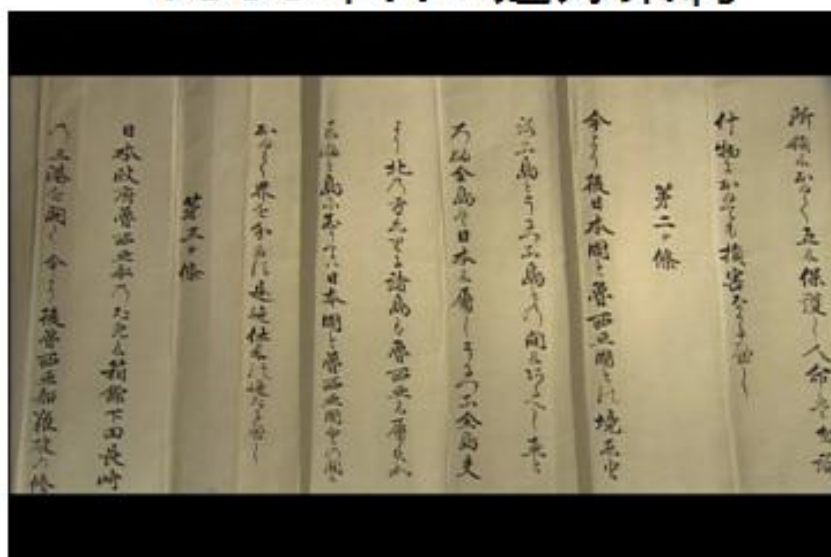 所領におゐて互に保護し人命は勿論
什物におゐても損害なかるへし
第二ケ條
今より後日本國と魯西亜國との境
島と 島との間にあるへし
全島は日本に属し 全島夫
より北の方 諸島は魯西亜に属す
島に至りては日本國と魯西亜國の間に
おゐて界を分たす是迄仕来の通たるへし
第三ケ條
日本政府魯西亜船のために箱館下田長崎
の三港を開く今より後魯西亜船難破の修